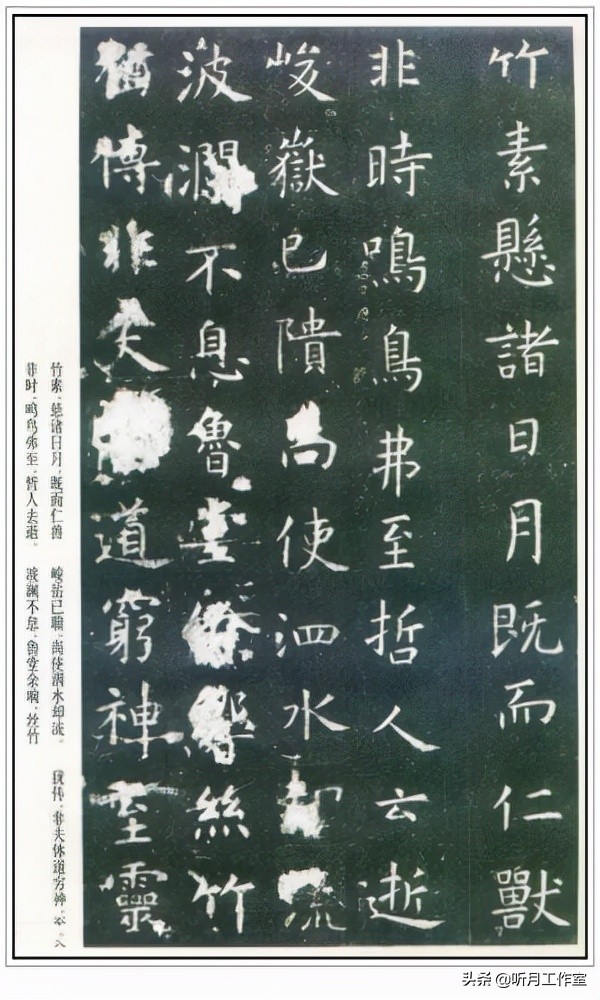 竹素懸諸日月既而仁獸
非時鳴鳥弗至哲人云逝
峻嶽已隤尚使泗水却流
波瀾不息魯堂餘響絲竹
猶傳非夫道窮神至靈
竹素，悬诸日月，既而仁兽
非时，鸣鸟弗至，哲人云逝。
峻岳已隤，尚使泗水却流。
波澜不息，鲁堂余响，丝竹
犹传，非夫体道穷神，
头条 @听月工作室